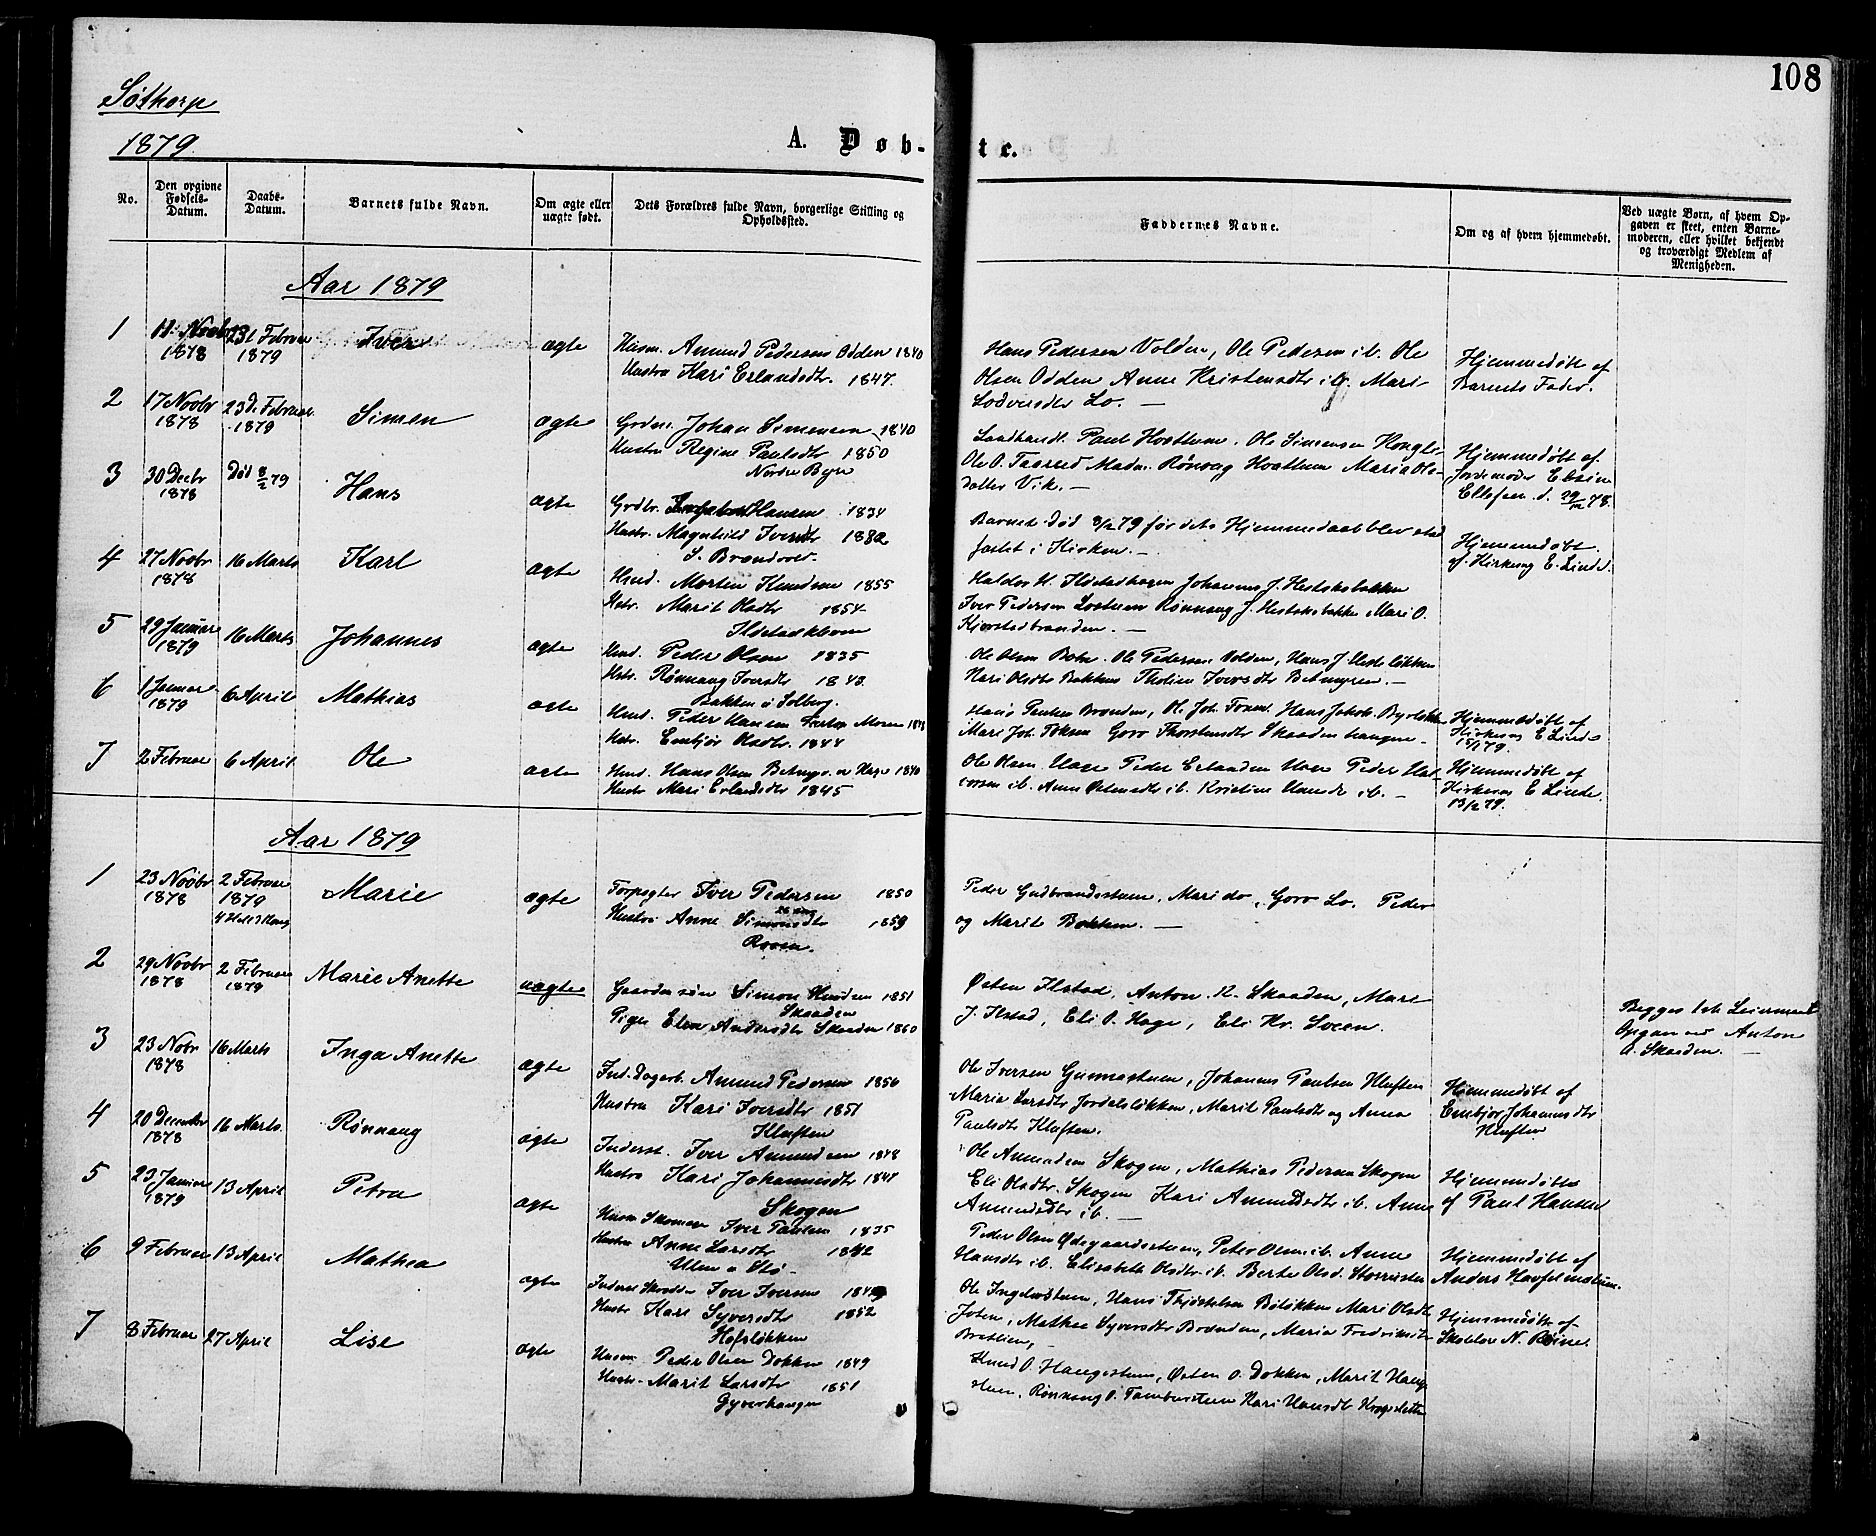 108
Søthorp
1879.
A. Døb-
te.
No.
Den opgivne Fødsels-Datum.
Daabs-Datum.
Barnets fulde Navn.
Om ægte eller uægte født.
Dets Forældres fulde Navn, borgerlige Stilling og Opholdssted.
Faddernes Navne.
Om og af hvem hjemmedøbt.
Ved uægte Børn, af hvem Opgaven er skeet, enten Barnemoderen, eller hvilket bekjendt og troværdigt Medlem af Menigheden.
Aar 1879
1
11 Novbr 1878
Februar 1879
Iver
ægte
Husm. Amund Pedersen Odden 1840
Hustro Kari Erlandsdtr. 1847.
Hans Pedersen Volden, Ole Pedersen ib. Ole
Olsen Odden Anne Kristensdtr ib. Mari
Lodversdtr Lo. —
Hjemmedøbt af
Barnets Fader.
2
17 Novbr 1878
23de Februar 1879
Simen
ægte
Grdbr. Johan Simensen 1840
Hustro Regine Paulsdtr 1850
Nordre Byre
Landhandl. Paul Hvattum. Ole Simensen Kongli
Ole O. Taarud Madm. Rønnaug Hvattum Maria Ole-
datter Vik. —
Hjemmedøbt af
Jordemoder Elsine
Ellefsen d. 29/12 78.
3
30 Decbr 1878
Død 8/2 79
Hans
ægte
Grdbr. Hansen 1834
Hustr. Magnhild Iversdtr
S. Brandvol.
Barnet død 8/2 79 før dets Hjemmedaab blev stad
fæstet i Kirken. —
Hjemmedøbt
af Kirkesng E. Linde.
4
27 Novbr 1878
16 Marts
Karl
ægte
Hmd. Morten Knudsen 1855
Hstr. Marit Olsdtr 1854
Ilstadkleven
Haldor H. Ilstadhagen Johannes J. Hesteksbakken
Iver Pedersen Rønnaug J. Hesteksbakke Mari O.
Kjorstadbranden. —
5
29 Januar 1879
16 Marts
Johannes
ægte
Hmd. Peder Olsen 1835
Hstr. Rønnaug Iversdtr 1843.
Bakken u Solberg.
Ole Olsen Ole Pedersen Volden, Hans J.
Kari Olsdtr Bakken Tholine Iversdtr —
6
1 Januar 1879
6 April
Mathias
ægte
Hmd. Peder Hansen Moen
Hstr. Embjør Olsdtr. 1844
Hans Paulsen Brænden, Ol. Joh. Hans Jakob.
Mari Joh. Goro Thorstensdtr Skaaden haugen —
Hjemmedøbt af
Kirkesng E Linde
15/1 79.
7
2 Februar
6 April
Ole
ægte
Hmd. Hans Olsen 1840
Hustr Mari Erlandsdtr 1845
Ole Olsen Hage Peder Erlandsen Hage Peder Hal-
vorsen ib. Anne Østensdtr ib. Kristine Hansdr ib. —
Hjemmedøbt af
Kirkesng E Linde.
13/2 79.
Aar 1879
1
23 Novbr 1878
2 Februar 1879
Marie
ægte
Forpagter Iver Pedersen 1850
Hustro Anne Simensdtr 1859
Peder Gudbrandsstuen, Mari do, Goro Lo. Peder
og Marit Bakken. —
2
29 Novbr 1878
2 Februar 1879
Marie Anette
uægte
Gaardersøn Simon 1851
Skaaden
Pige Elen Andersdtr Skaaden 1860
Østen Ilstad, Anton R. Skaaden, Mari
J. Ilstad, Eli O. Hage, Eli Kr. Sveen.
Begges 1ste Leiermaal
Opgav ved Anton
A. Skaaden. —
3
23 Nobr 1878
16 Marts
Inga Anette
ægte
Ind. Dagarb. Amund Pedersen 1856
Hustro Kari Iversdtr 1851
Kluften
Ole Iversen Johannes Paulsen Kluften
Maria Larsdtr Jordalsløkken, Marit Paulsdtr og Anna
Paulsdtr Kluften.
Hjemmedøbt af
Embjør Johannesdtr
Kluften
4
20 December 1878
16 Marts.
Rønnaug
ægte
Inderst. Iver Amundsen 1848
Hustro Kari Johannesdtr 1847
Skogen
Ole Amundsen Skogen, Mathias Pedersen Skogen
Eli Olsdtr. Skogen Kari Amundsdtr ib. Anne
Amundsdtr ib. —
Hjemmedøbt
af Paul Hansen
5
23 Januar 1879
13 April
Petra
ægte
Husm Skomager Iver Paulsen 1835
Hustro Anne Larsdtr 1842
Peder Olsen Ødegaardsstuen, Peter Olsen ib. Anne
Hansdtr ib. Elisabeth Olsdtr ib. Berte Olsd.
Hjemmedøbt af
Anders
6
9 Februar
13 April
Mathea
ægte
Inderst Iver Iversen
Hustr. Kari Syversdtr 1852
Hofsløkken
Ole Hans Bøløkken Mari Olsdtr
Mathea Syversdtr Brænden, Maria Fredriksdtr
Hjemmedøbt af
Skolelær N.
7
8 Februar
27 April
Lise
ægte
Husm Peder Olsen Dokken 1849
Hustr. Marit Larsdtr 1851
Gyverhaugen
Knud O. Haugestuen, Østen O. Dokken, Marit Hauge-
stuen, Rønnaug O. Kari Hansdtr